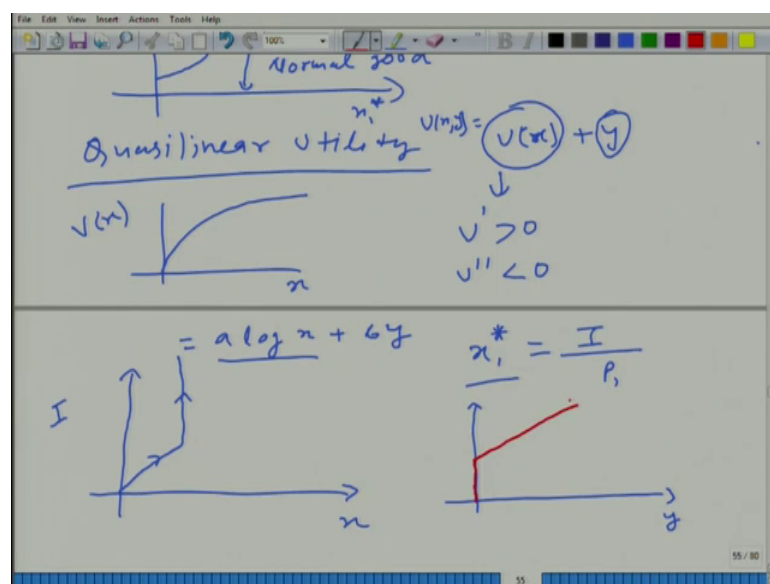 File Edit View Insert Actions Tools Help
100%
B I
Normal good
x₁*
Quasilinear utility U(x,y) = v(x) + y
v(x)
v' > 0
v'' < 0
x
= a log x + by
x₁* = I / P₁
I
x
y
55 / 80
55